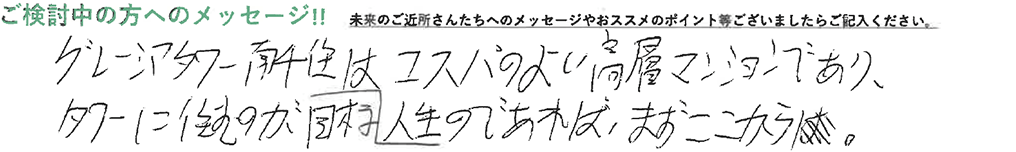 ご検討中の方へのメッセージ!! 未来のご近所さんたちへのメッセージやおススメのポイント等ございましたらご記入ください。
グレーシアタワー南千住は コスパのよい高層マンションであり、
タワーに住むのが目標な人生のであれば、まずここから。